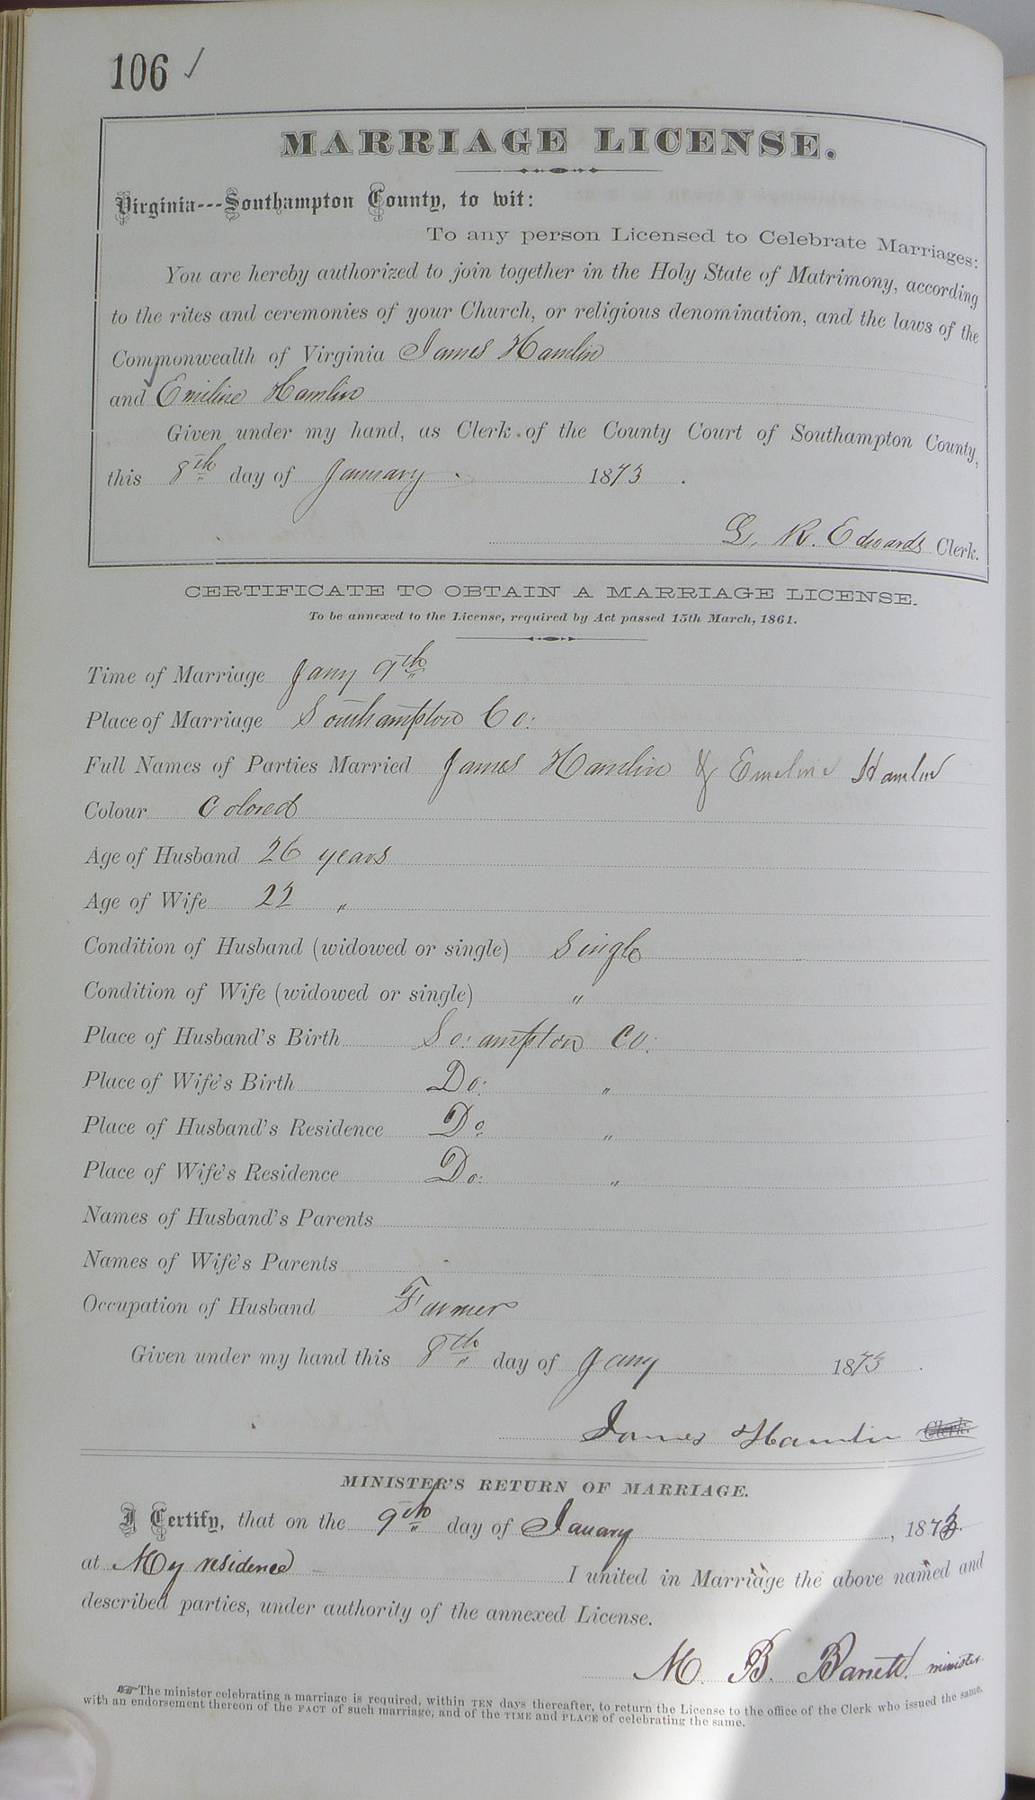 106 ✓
MARRIAGE LICENSE.
Virginia---Southampton County, to wit:
To any person Licensed to Celebrate Marriages:
You are hereby authorized to join together in the Holy State of Matrimony, according
to the rites and ceremonies of your Church, or religious denomination, and the laws of the
Commonwealth of Virginia James Hamlin
and Emeline Hamlin
Given under my hand, as Clerk of the County Court of Southampton County,
this 8th day of January 1873.
L. R. Edwards Clerk.
CERTIFICATE TO OBTAIN A MARRIAGE LICENSE.
To be annexed to the License, required by Act passed 15th March, 1861.
Time of Marriage Jany 9th
Place of Marriage Southampton Co:
Full Names of Parties Married James Hamlin & Emeline Hamlin
Colour Colored
Age of Husband 26 years
Age of Wife 22 "
Condition of Husband (widowed or single) Single
Condition of Wife (widowed or single) "
Place of Husband's Birth So:ampton Co:
Place of Wife's Birth Do: "
Place of Husband's Residence Do "
Place of Wife's Residence Do: "
Names of Husband's Parents
Names of Wife's Parents
Occupation of Husband Farmer
Given under my hand this 8th day of Jany 1873.
James Hamlin Clerk.
MINISTER'S RETURN OF MARRIAGE.
I Certify, that on the 9th day of Jauary, 1873.
at My residence I united in Marriage the above named and
described parties, under authority of the annexed License.
M. B. Barrett. minister.
☞ The minister celebrating a marriage is required, within TEN days thereafter, to return the License to the office of the Clerk who issued the same,
with an endorsement thereon of the FACT of such marriage, and of the TIME and PLACE of celebrating the same.